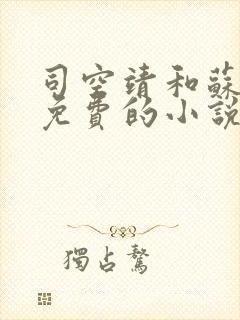 司空靖和蘇
免費的小說
獨占鰲